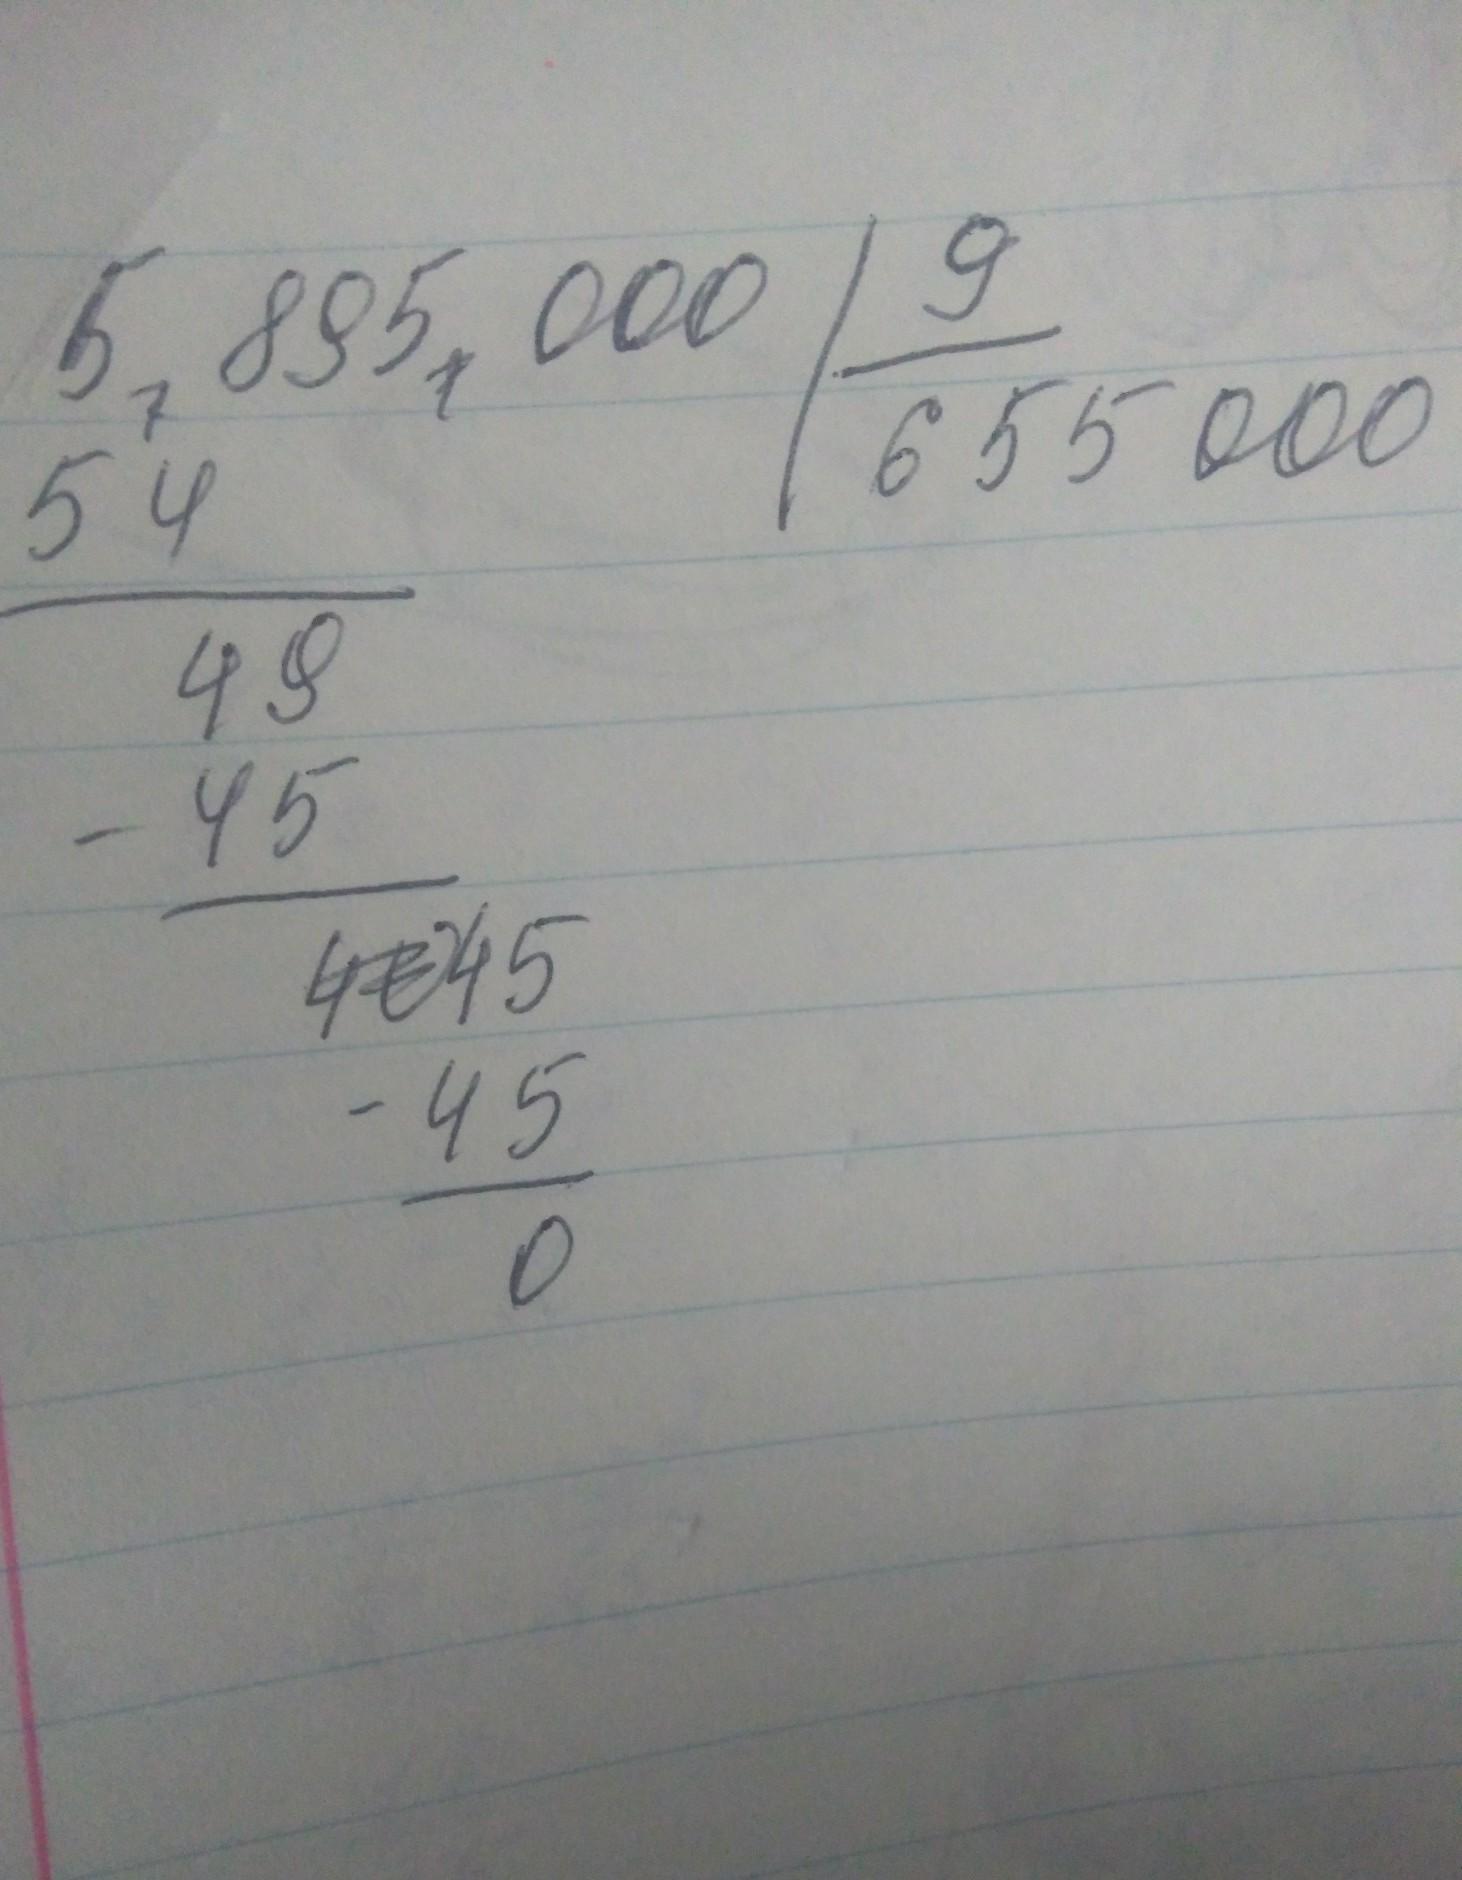 5,895,000 9
655000
54
49
- 45
45
- 45
0